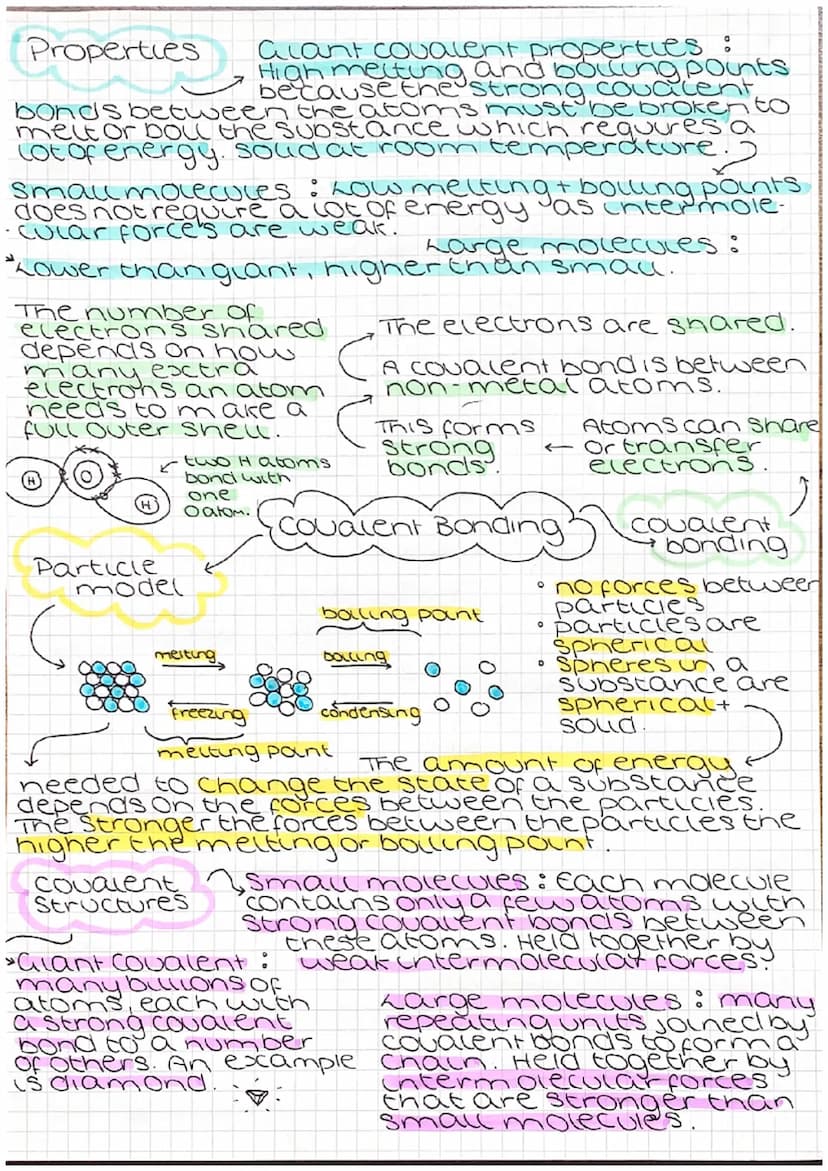 Properties
Giant covalent properties :
High melting and boiling points
because the strong covalent
bonds between the atoms must be broken to
melt or boil the substance which requires a
lot of energy. Solid at room temperature.
Small molecules : Low melting + boiling points
does not require a lot of energy as intermole-
cular forces are weak.
Large molecules :
Lower than giant, higher than small.
The number of
electrons shared
depends on how
many extra
electrons an atom
needs to make a
full outer shell.
The electrons are shared.
A covalent bond is between
non-metal atoms.
This forms
strong
bonds.
Atoms can share
or transfer
electrons.
H
O
H
two H atoms
bond with
one
O atom.
Covalent Bonding
covalent
bonding
Particle
model
boiling point
melting
boiling
freezing
condensing
melting point
• no forces between
particles
• particles are
spherical
• spheres in a
substance are
spherical +
solid.
The amount of energy
needed to change the state of a substance
depends on the forces between the particles.
The stronger the forces between the particles the
higher the melting or boiling point.
Covalent
structures
Small molecules : Each molecule
contains only a few atoms with
strong covalent bonds between
these atoms. Held together by
weak intermolecular forces.
Giant Covalent :
many billions of
atoms, each with
a strong covalent
bond to a number
of others. An example
is diamond.
Large molecules : many
repeating units joined by
covalent bonds to form a
chain. Held together by
intermolecular forces
that are stronger than
small molecules.